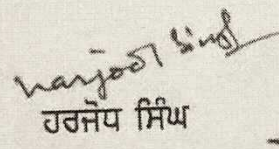 Harjodh Singh
ਹਰਜੋਧ ਸਿੰਘ